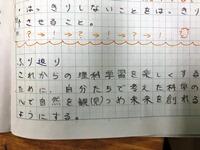 は、きりしないことをは、きり
させること。
? → ! → ? → ! → ? → !
ふり返り
これからの理科学習を楽しくする
ために、自分たちで考えた科学の
で自然を観(見)つめ未来を創れる
ようにする。